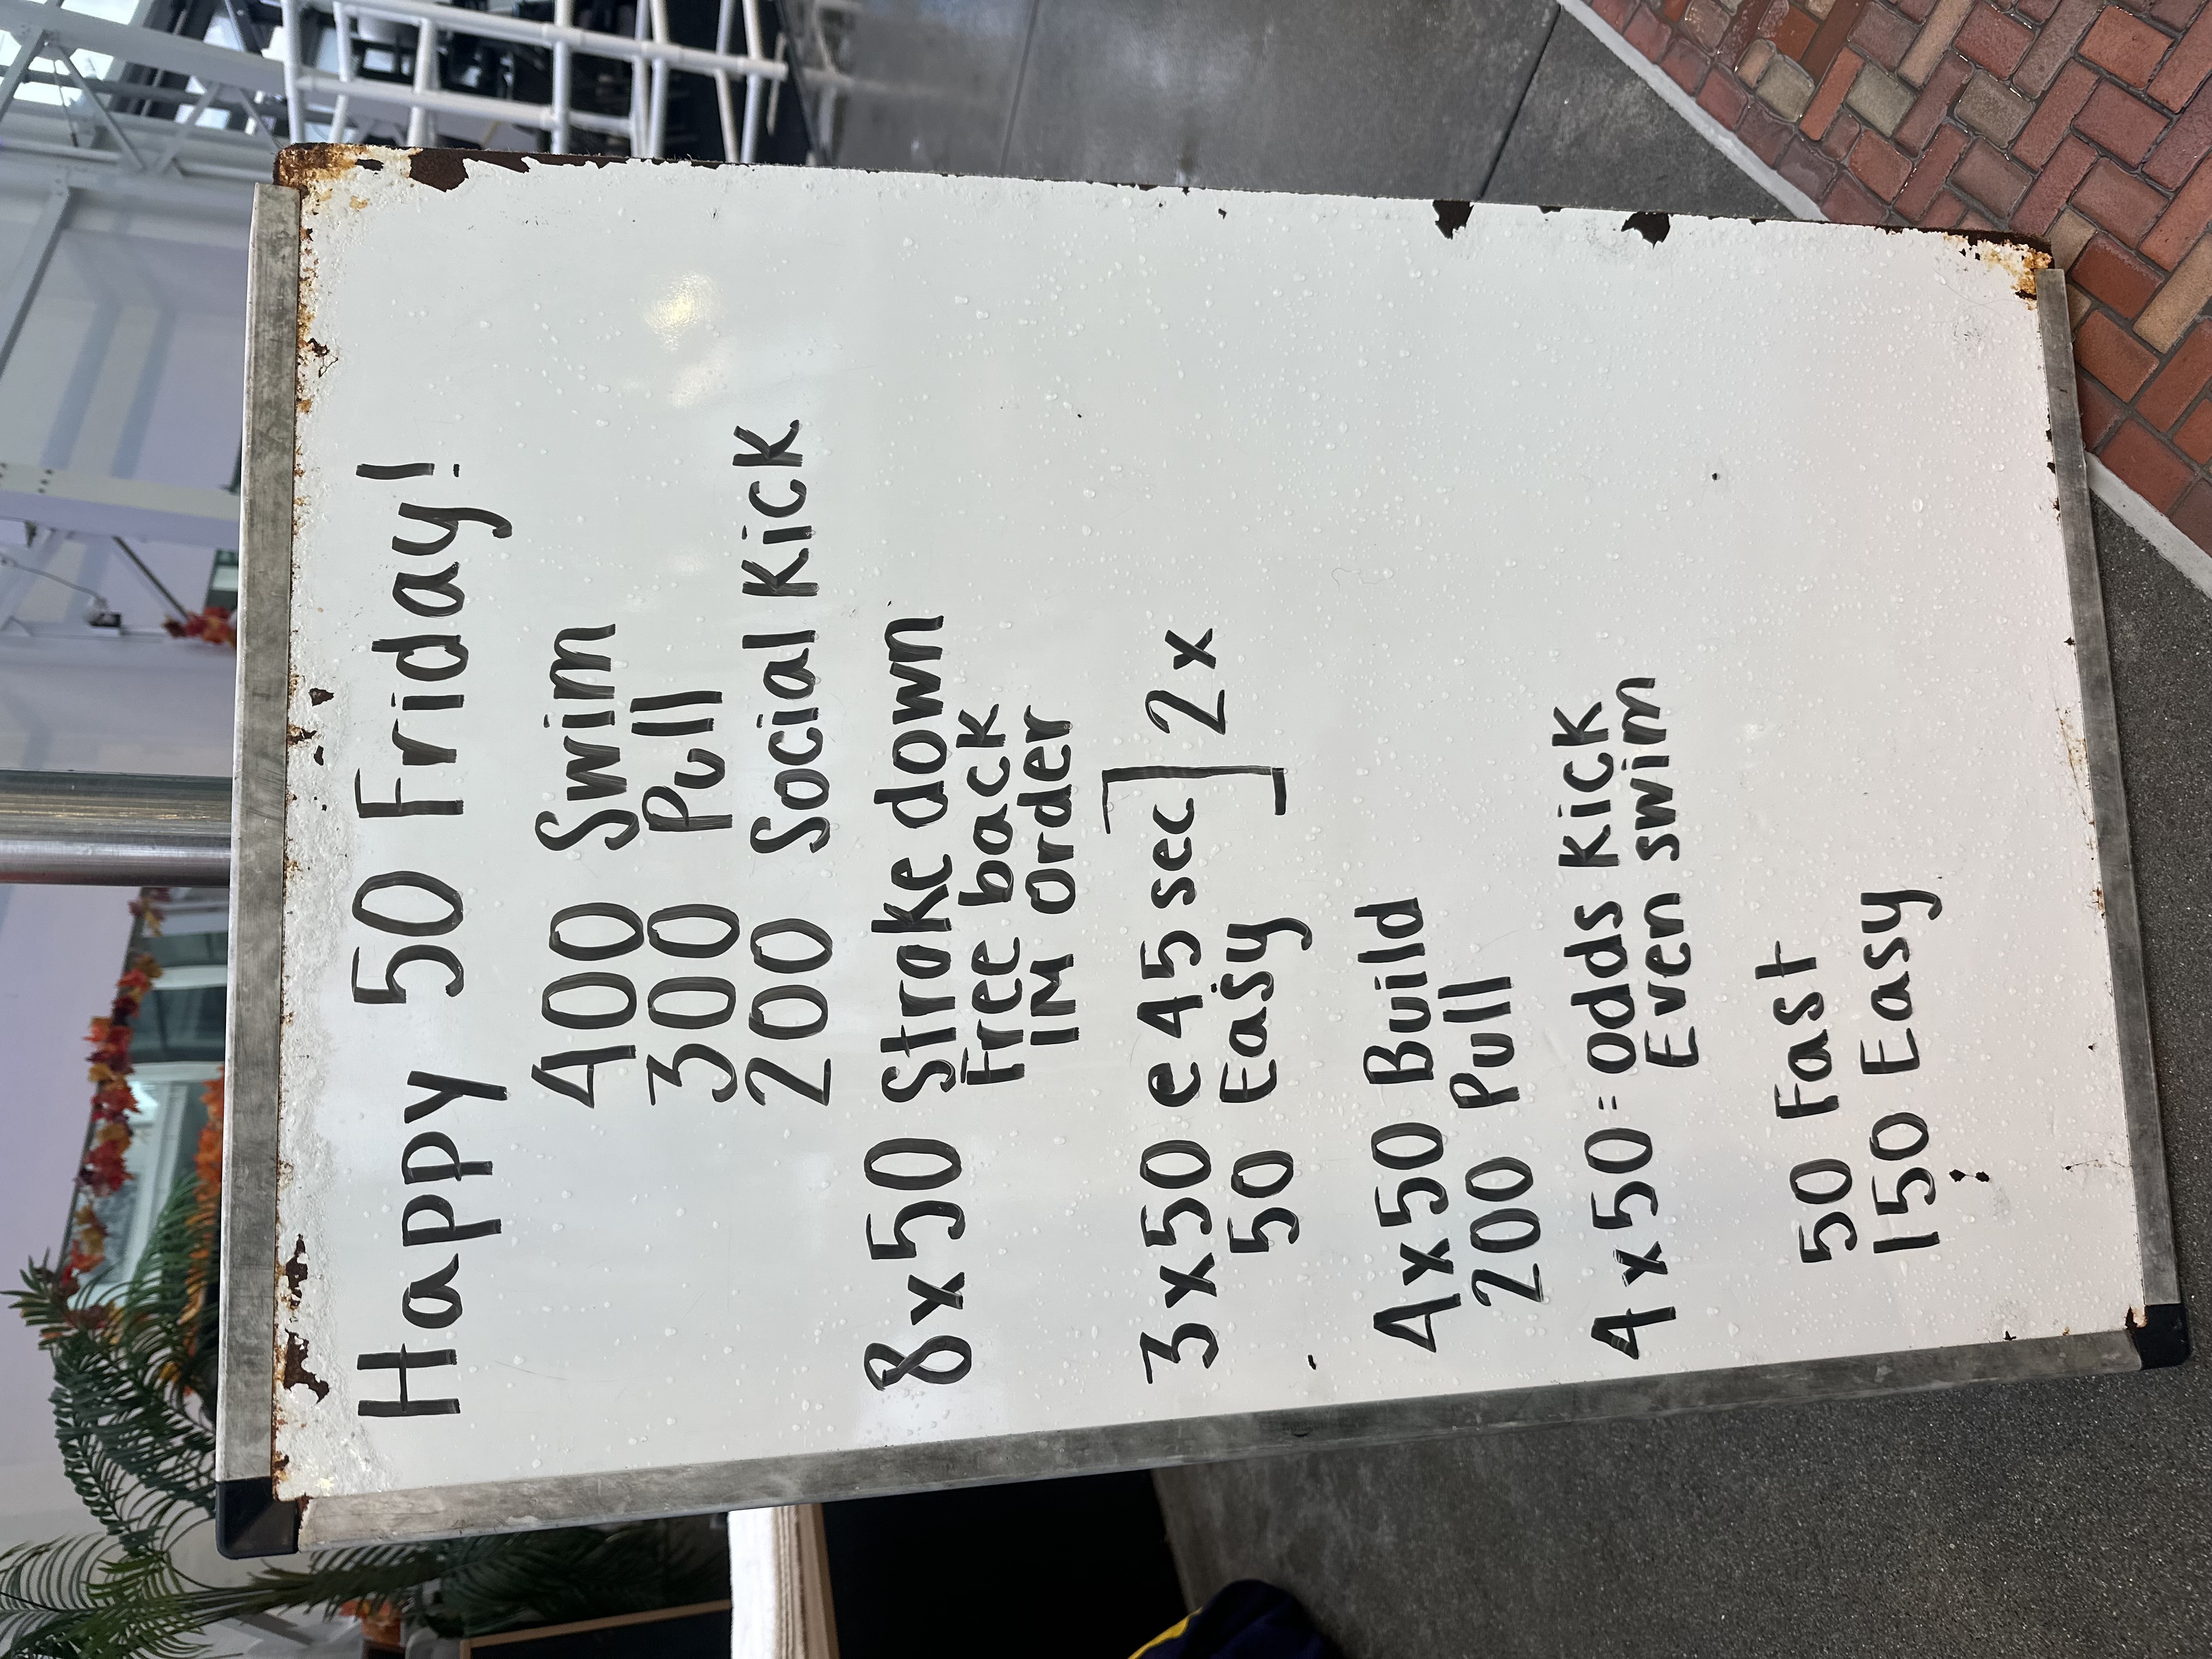 Happy 50 Friday!
400 Swim
300 Pull
200 Social Kick
8x50 Stroke down
Free back
IM order
3x50 e 45 sec ] 2x
50 Easy
4x50 Build
200 Pull
4x50 = odds Kick
Even swim
50 Fast
150 Easy